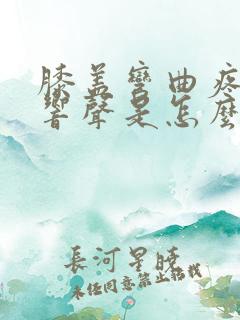 膝盖彎曲疼
響聲是怎麼
長河星曉
未經同意禁止搭載